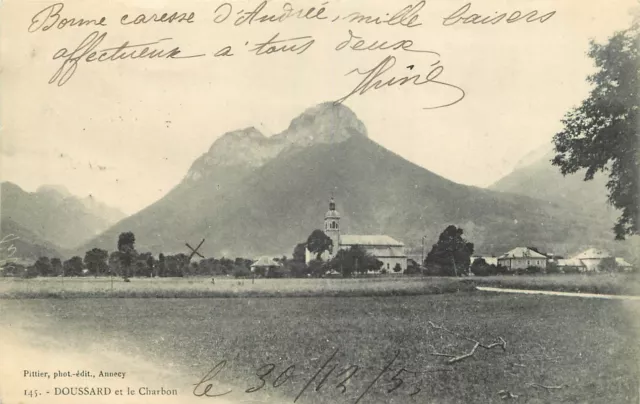 Bonne caresse d'Andrée, mille baisers
affectueux à tous deux
Pittier, phot.-édit., Annecy
145. - DOUSSARD et le Charbon
le 30/12/5